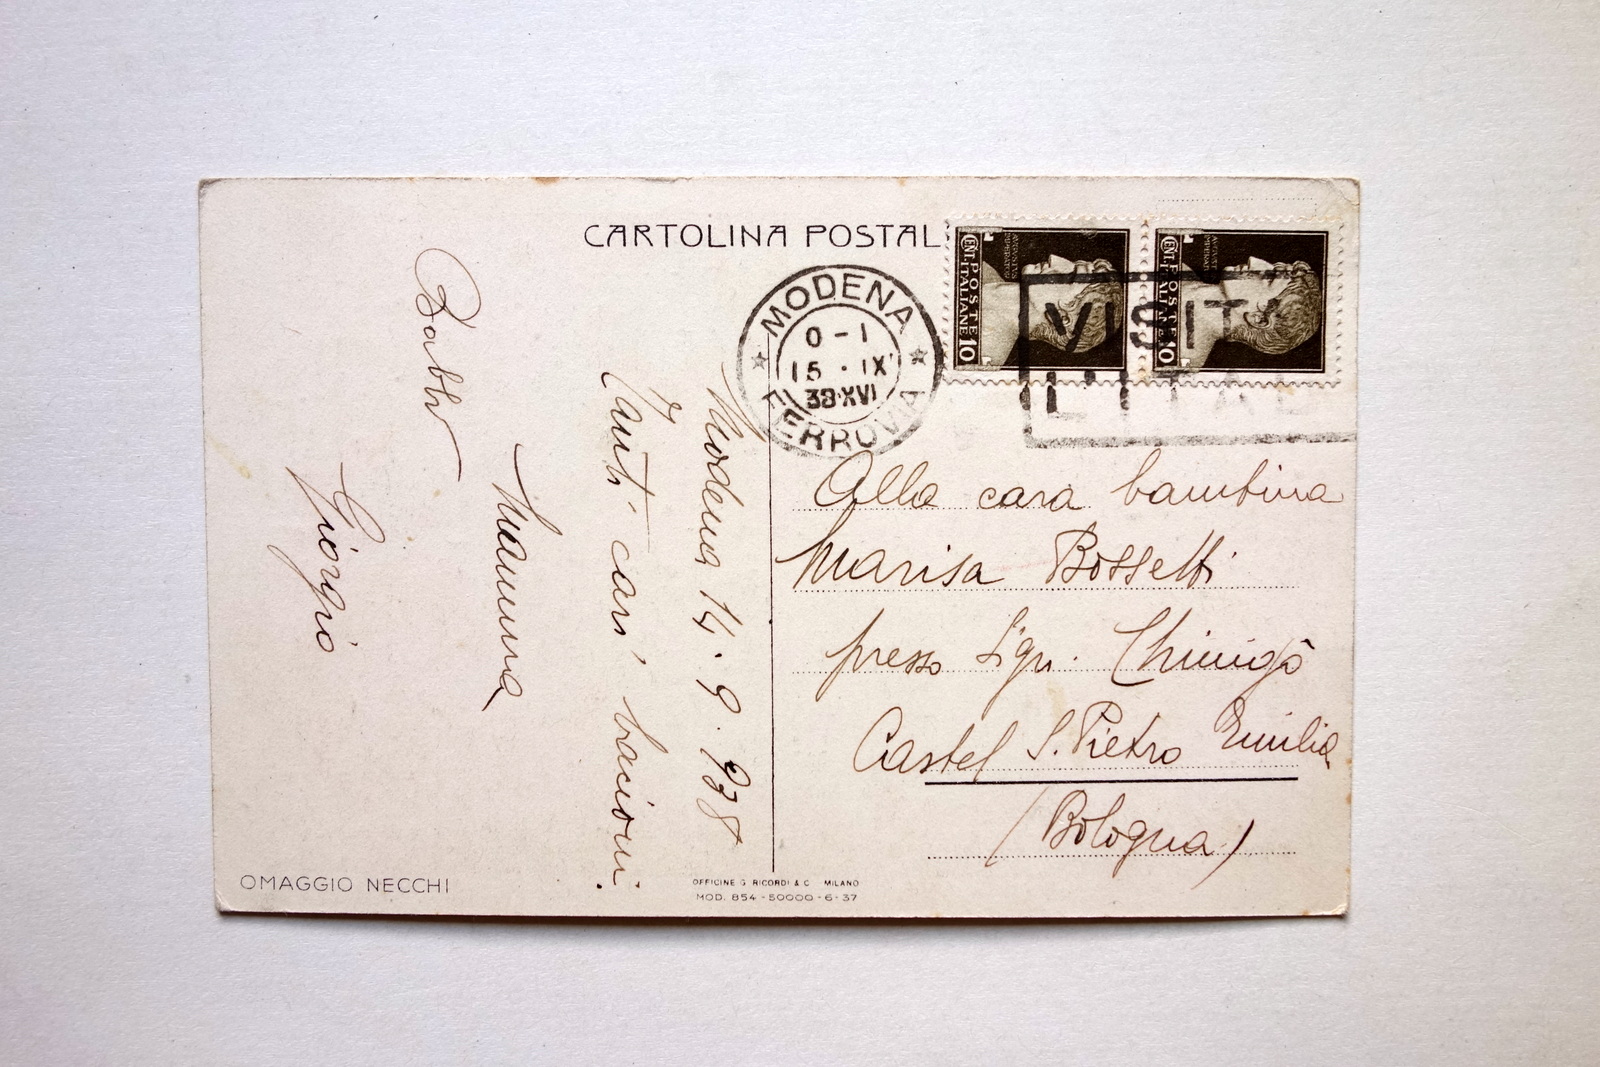 CARTOLINA POSTAL
MODENA
0-1
15·IX
38·XVI
FERROVIA
CENT. 10
POSTE
ITALIANE
CENT. 10
POSTE
ITALIANE
VISITA
L'ITAL
Modena 14.9.938
Tanti cari bacioni.
Mamma
Babbo
Giorgio
Alla cara bambina
Marisa Bossetti
presso Sign.
Castel S. Pietro Emilia
(Bologna)
OMAGGIO NECCHI
OFFICINE G. RICORDI & C. MILANO
MOD. 854-50000-6-37